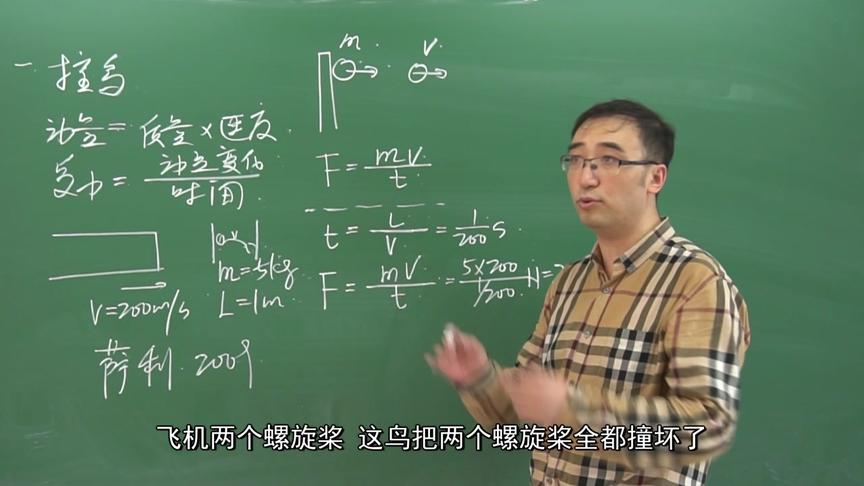 一 撞鸟
动量 = 质量 × 速度
受力 = 动量变化 / 时间
V=200m/s
v
m=5kg
L=1m
萨利 2009
m v
F = mv / t
t = L / V = 1/200 s
F = mv / t = 5×200 / 1/200 N =
飞机两个螺旋桨 这鸟把两个螺旋桨全都撞坏了